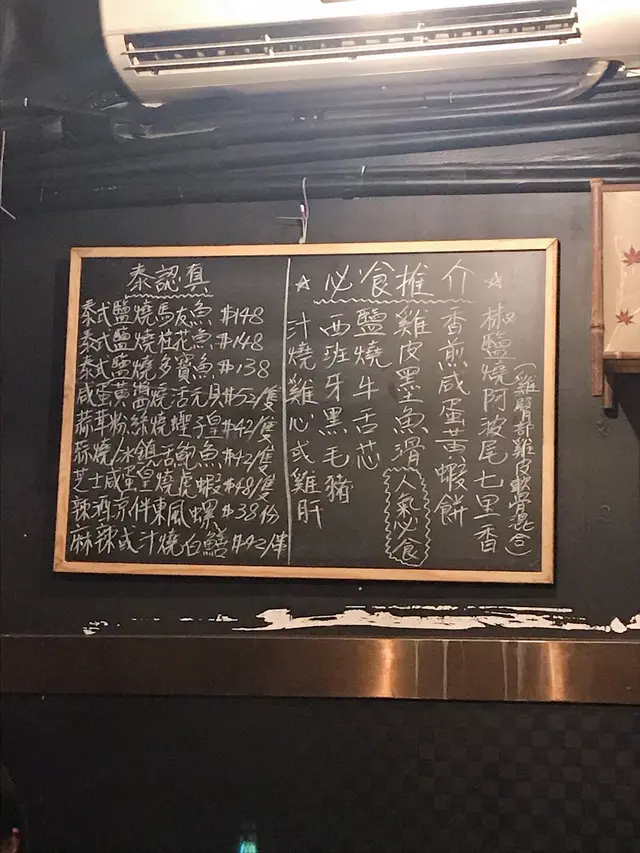 泰認真
泰式鹽燒馬友魚 $148
泰式鹽燒桂花魚 $148
泰式鹽燒多寶魚 $138
咸蛋黃醬燒活元貝 $52/隻
蒜茸粉絲燒蟶子皇 $42/隻
蒜燒/冰鎮活鮑魚 $42/隻
芝士咸蛋皇燒虎蝦 $48/隻
辣酒凉伴東風螺 $38/份
麻辣或汁燒白鱔 $42/
☆必食推介☆
(雞腎部雞皮軟骨混合)
椒鹽燒阿波尾七里香
香煎咸蛋黃蝦餅
雞皮墨魚滑 人氣必食
鹽燒牛舌芯
西班牙黑毛豬
汁燒雞心或雞肝